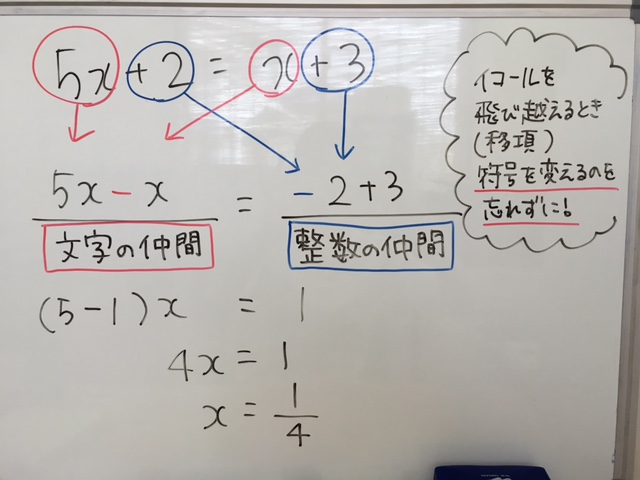 5x + 2 = x + 3
5x - x = -2 + 3
文字の仲間
整数の仲間
(5 - 1)x = 1
4x = 1
x = 1/4
イコールを
飛び越えるとき
(移項)
符号を変えるのを
忘れずに!